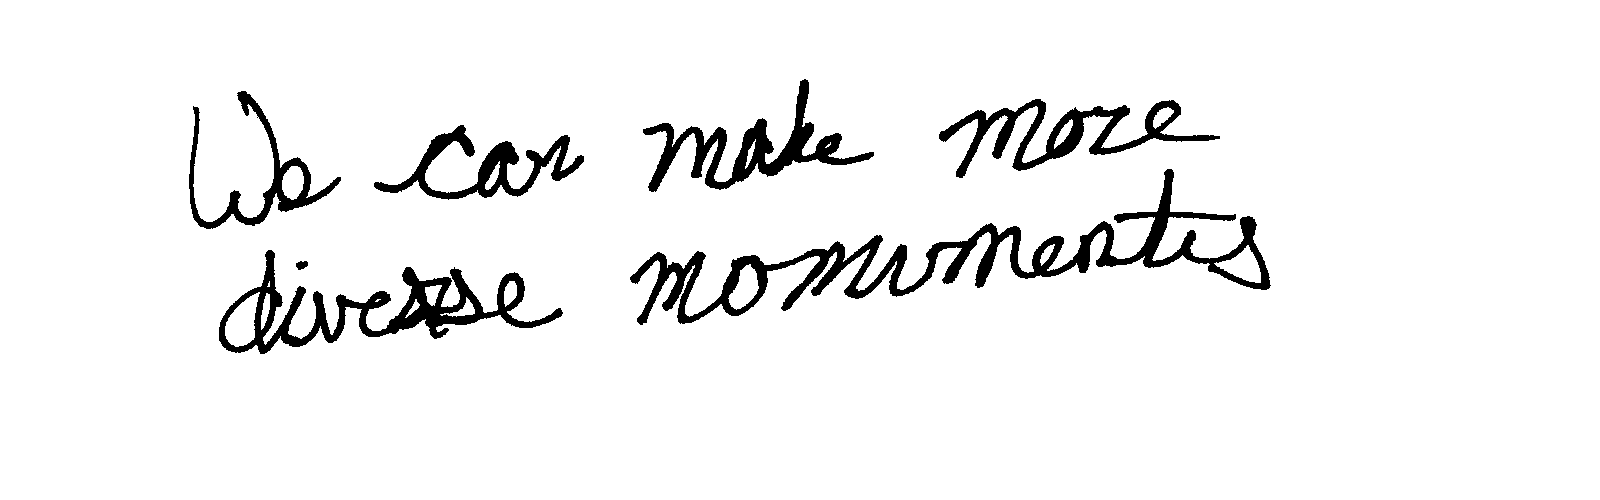 We can make more
diverse monuments